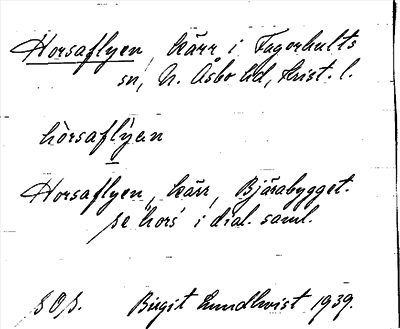 Horsaflyen, kärr i Fagerhults
sn, N. Åsbo hd, Krist. l.
hòrsaflỳen
Horsaflyen, kärr, Bjärabygget.
se 'hors' i dial. saml.
Birgit Lundkvist 1939.